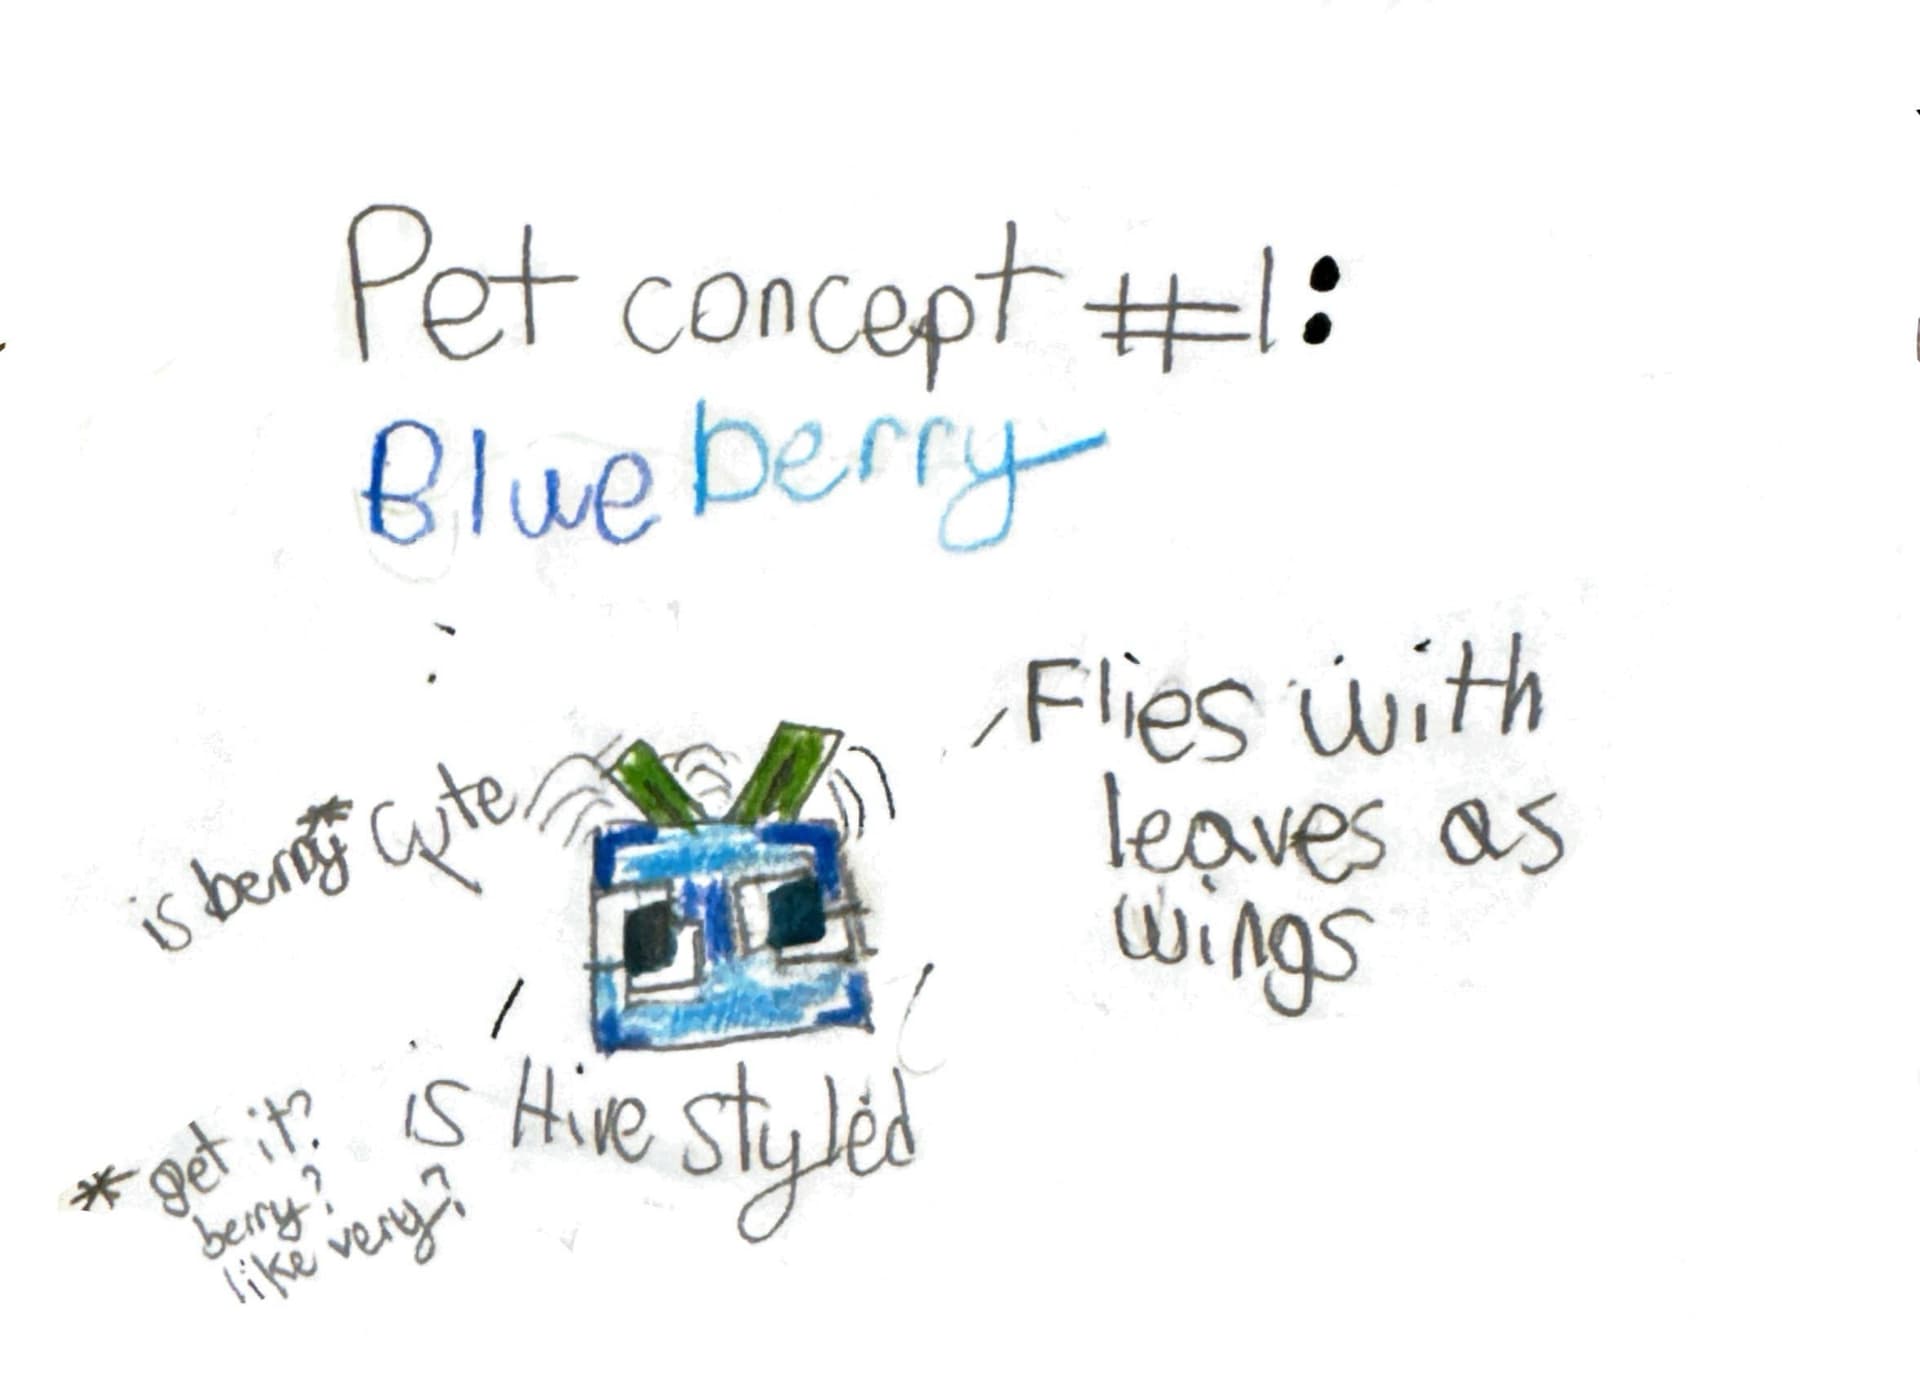 Pet concept #1:
Blueberry
Flies with
leaves as
wings
is berry* cute
is Hive styled
* get it?
berry?
like very?